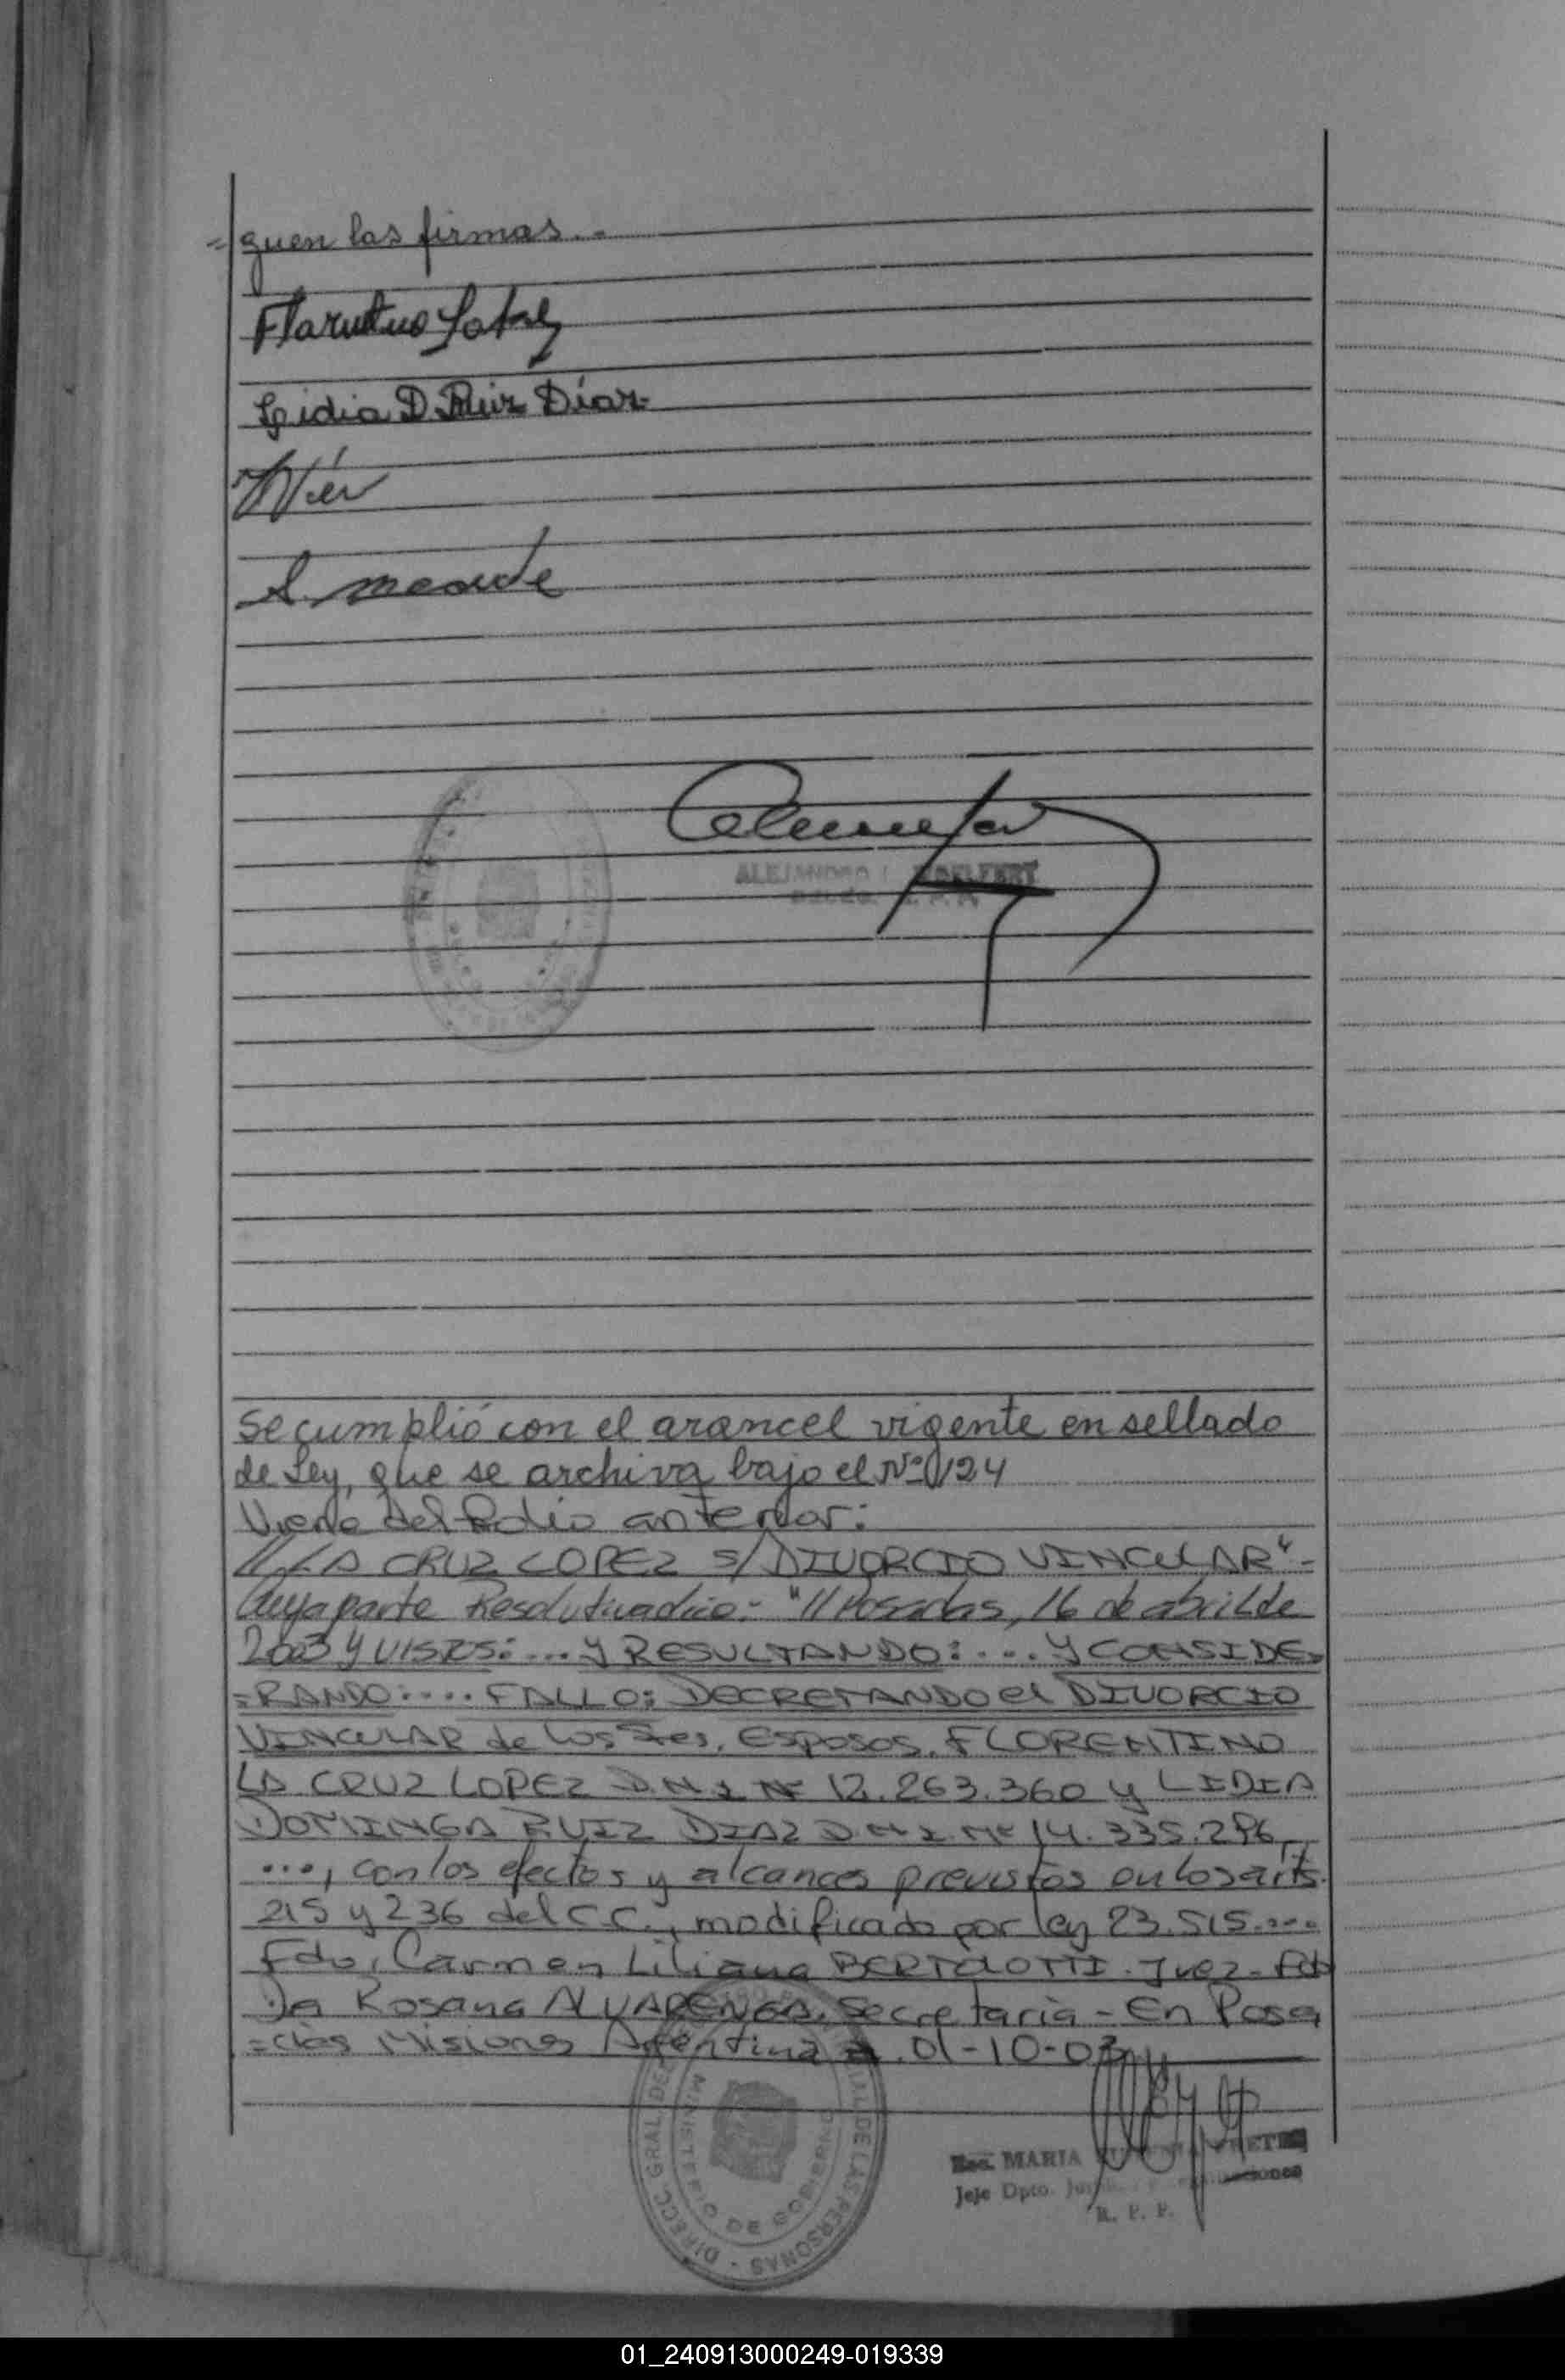 =guen las firmas.-
Lidia D. Ruiz Díaz
ALEJANDRO
Se cumplió con el arancel vigente en sellado
de Ley, que se archiva bajo el Nº 124
Viene del folio anterior:
// LA CRUZ LOPEZ S/ DIVORCIO VINCULAR"-
Cuya parte Resolutiva dice:- "// Posadas, 16 de abril de
2003 Y VISTOS: ... Y RESULTANDO: ... Y CONSIDE-
=RANDO: .... FALLO: DECRETANDO el DIVORCIO
VINCULAR de los Sres. Esposos. FLORENTINO
LA CRUZ LOPEZ D.N.I Nº 12.263.360 y LIDIA
DOMINGA RUIZ DIAZ D N I. Nº 14.335.296
..., con los efectos y alcances previstos en los arts.
215 y 236 del C.C., modificado por ley 23.515....
Fdo. Carmen Liliana BERTOLOTTI. Juez- Fdo
Rosana ALVARENGA. Secretaria - En Posa
=das Misiones Argentina 01-10-03
DIRECC. GRAL. DE DE LAS PERSONAS -
MINISTERIO DE GOBIERNO
Esc. MARIA
Jefe Dpto.
R. P. P.
01_240913000249-019339